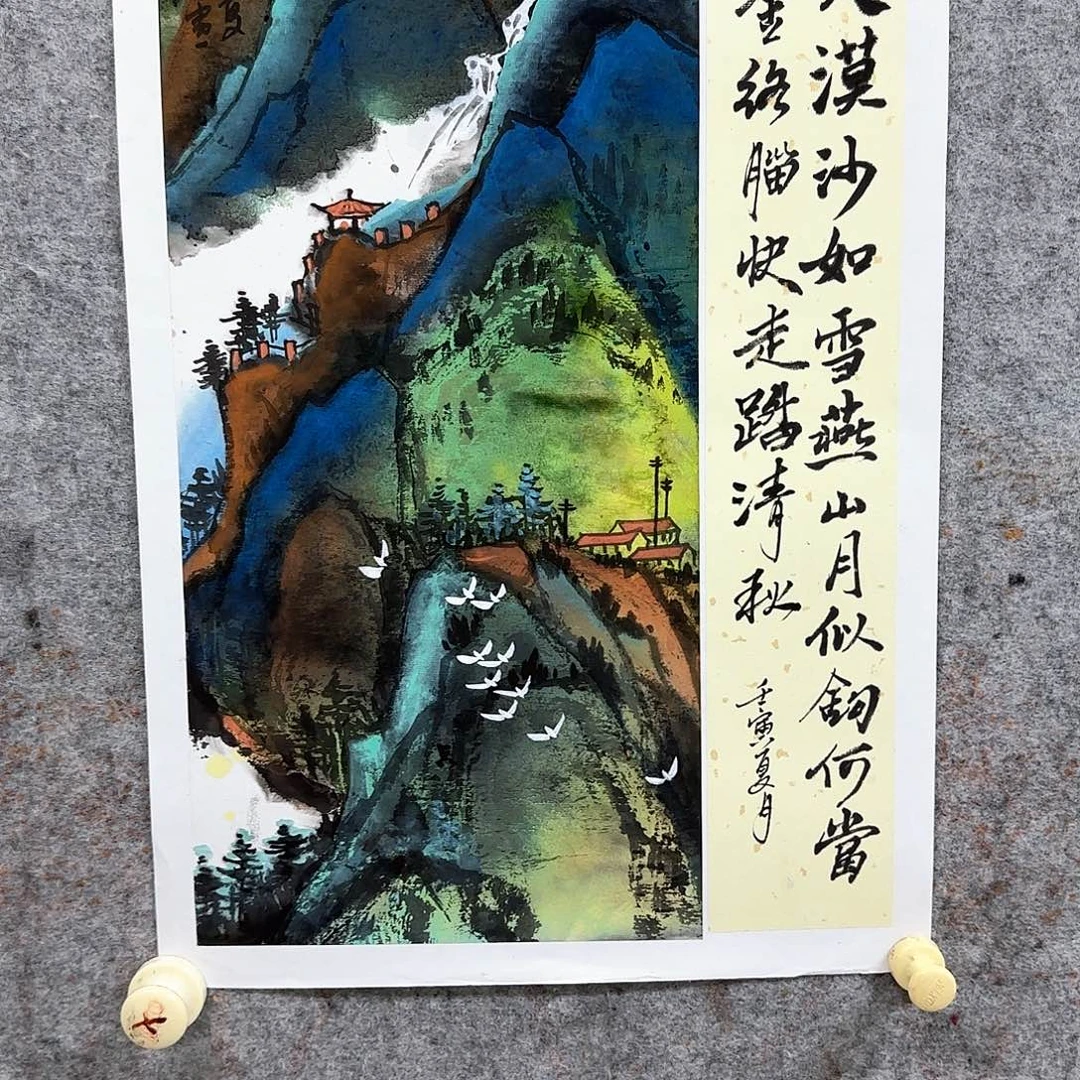 漠沙如雪燕山月似鈎何當
金絡腦快走踏清秋
壬寅夏月
夏
寅